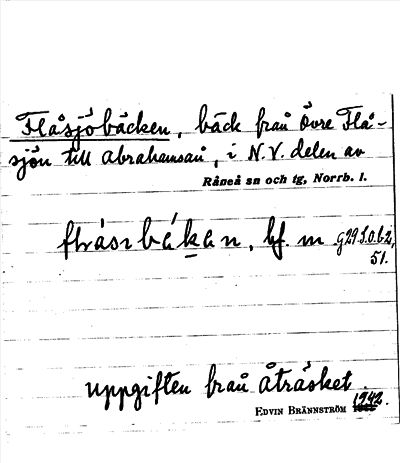 Flåsjöbäcken, bäck från Övre Flå-
sjön till Abrahamsån, i N.V. delen av
Råneå sn och tg, Norrb. l.
bf. m
51.
uppgiften från Åträsket
EDVIN BRÄNNSTRÖM 1942.